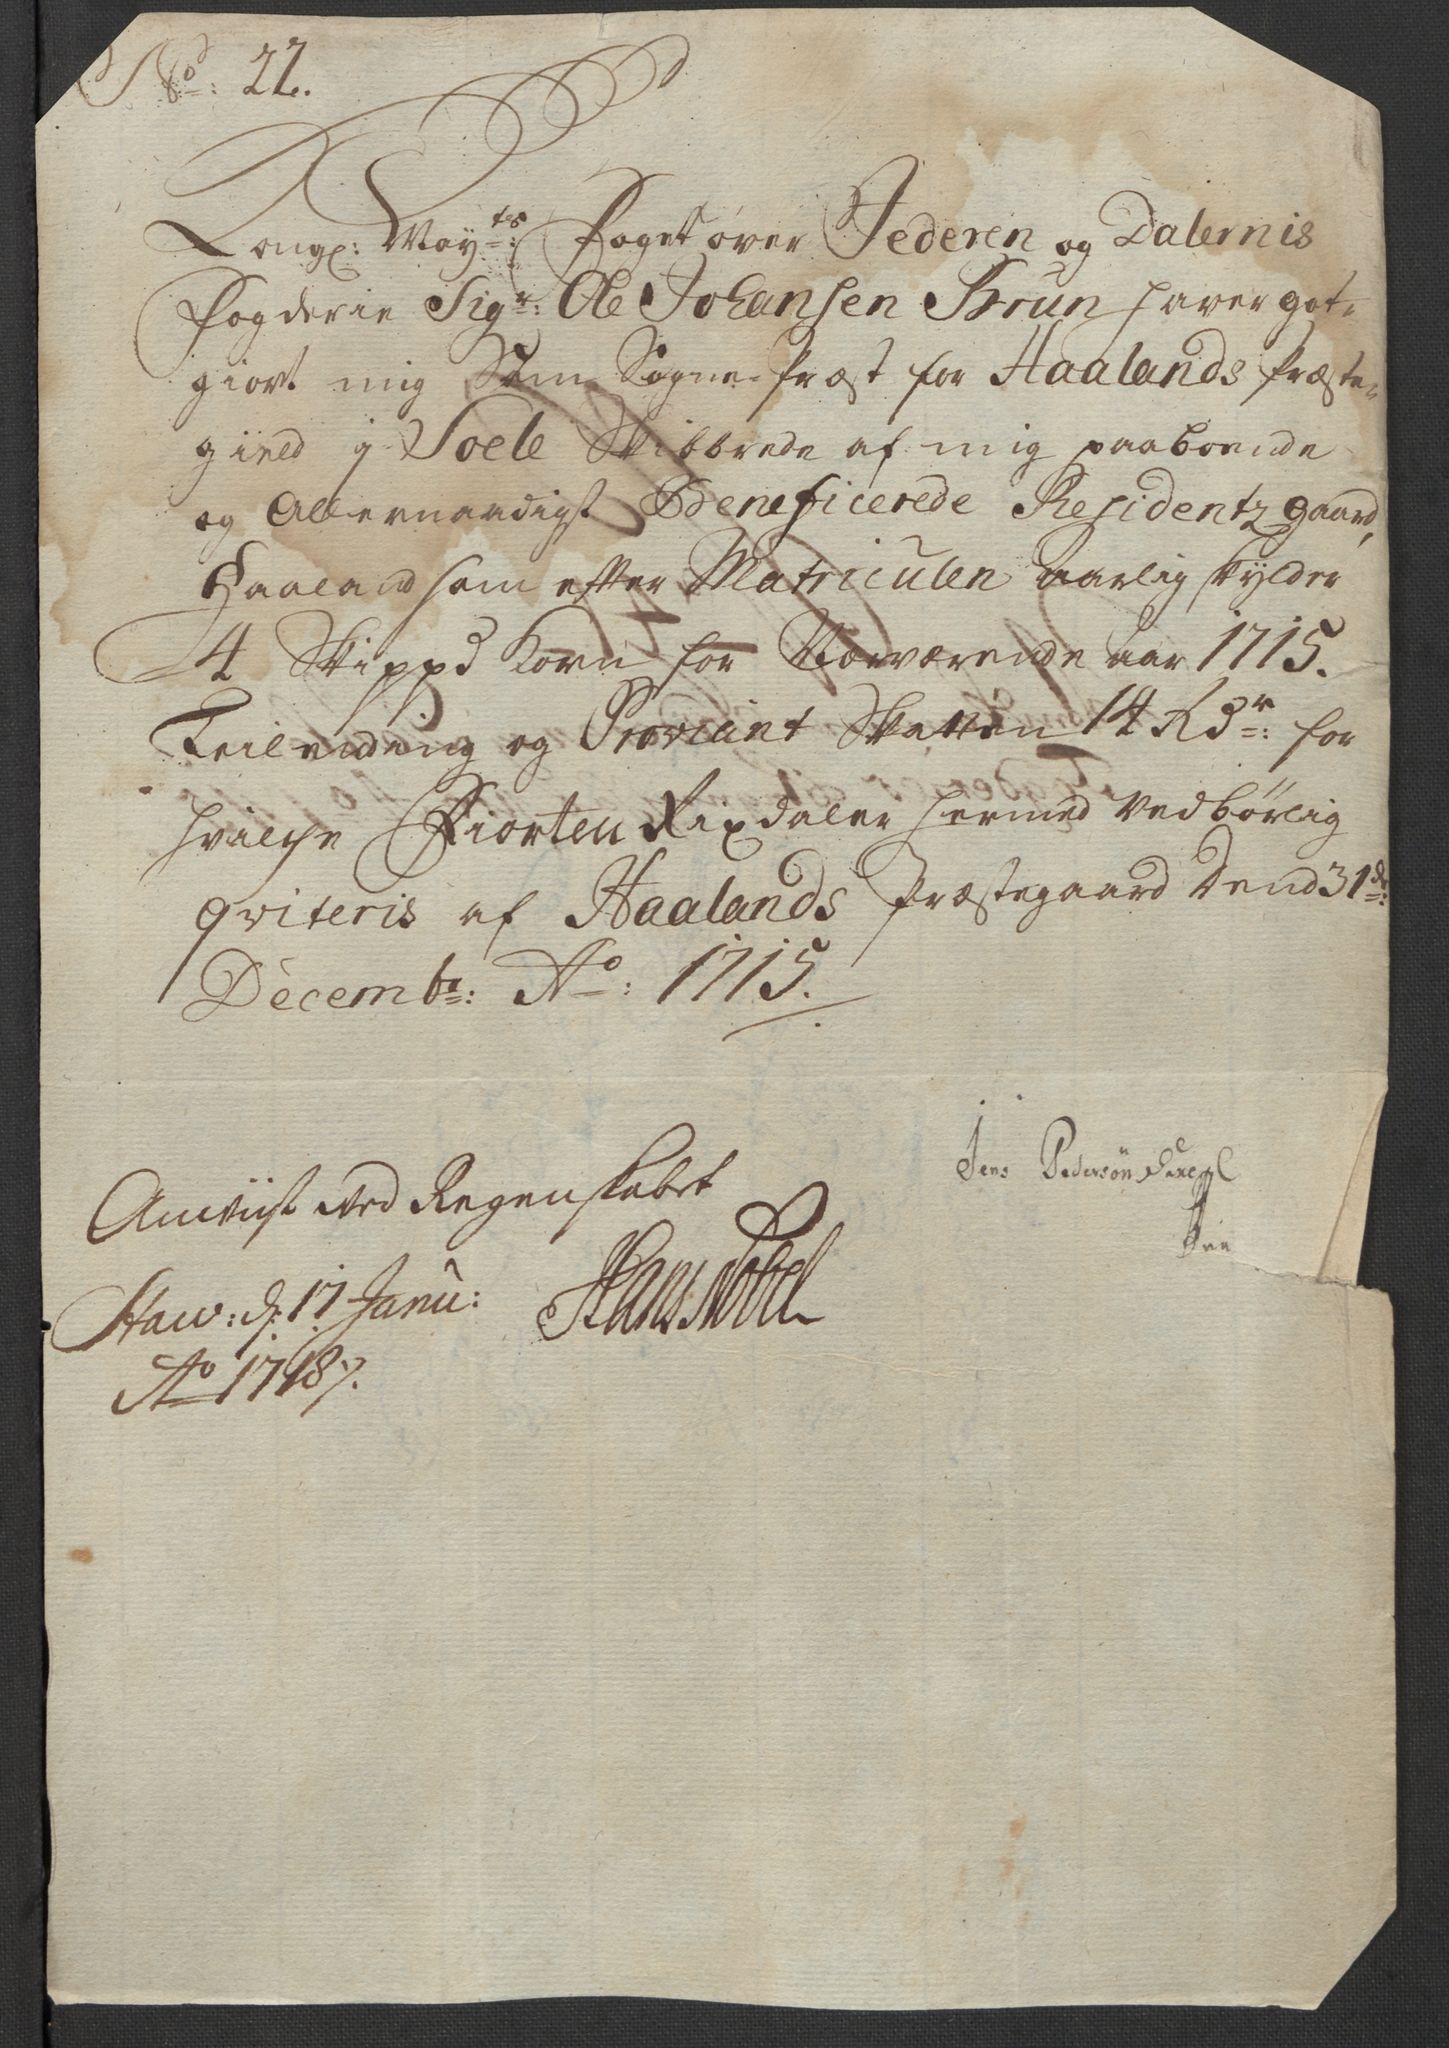 No: 22.
Kongl: May:ts Foget over Jederen og Dalernis
Fogderie Sigr: Ole Johansen Brun haver got-
giort mig Som Sogne-Præst for Haalands Præste-
gield j Soele Skibbrede af mig paaboende
og Allernaadigst Beneficerede Residentz gaard,
Haaland som efter Matriculen aarlig skylder
4 Skippd Korn for Nærværende aar 1715.
og Proviant Skatten 14 Rdr: for
hvilche Fiorten Rixdaler hermed Vedbørlig
qviteris af Haalands Præstegaard Dend 31de:
Decembr: Ao: 1715.
Jens Pedersøn
Anviist ved Regenskabet
Staw: d: 17 Janu: Hans Nobel
Ao 1718